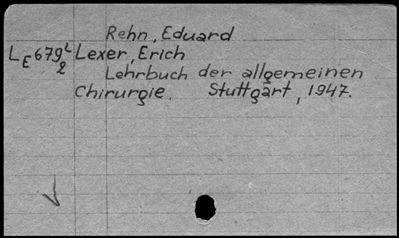 Rehn, Eduard
LE679L2 Lexer, Erich
Lehrbuch der allgemeinen
Chirurgie. Stuttgart, 1947.